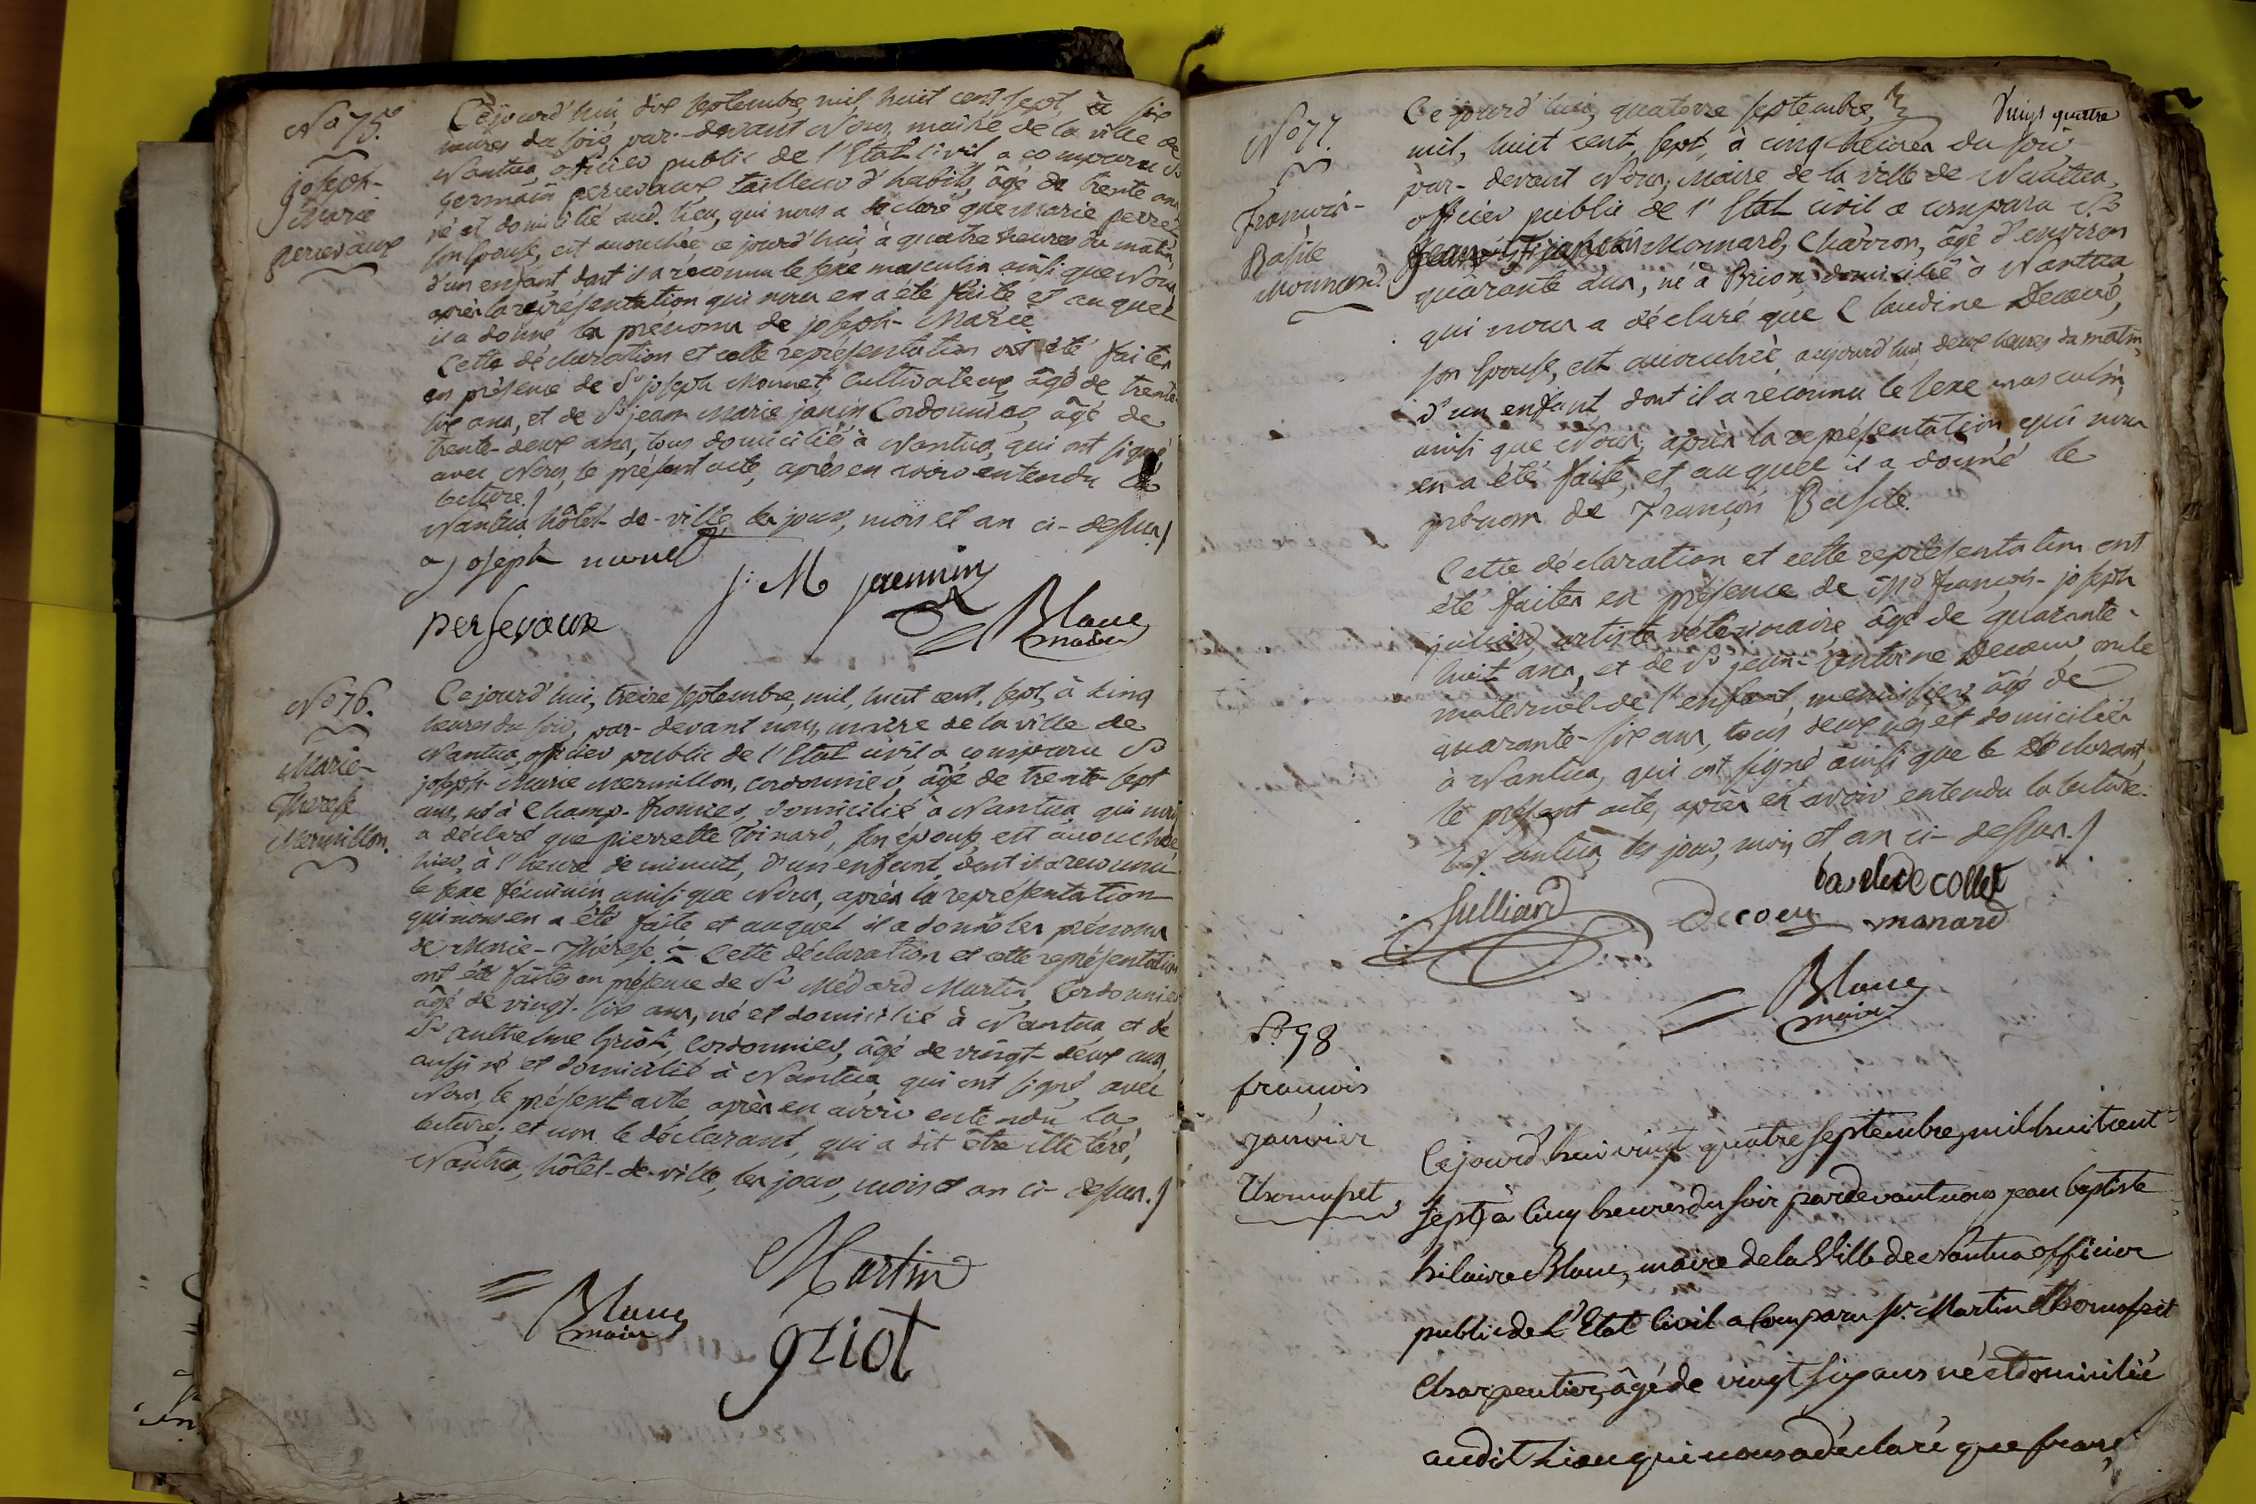 No 75.
joseph-
Marie
perrevaux
Cejourd'hui, dix septembre, mil, huit cent, sept, à six
heures du soir, par-devant Nous, maire de la ville de
Nantua, officier public de l'Etat civil, a comparu Sr
germain perrevaux, tailleur d'habits, âgé de trente ans
né et domicilié aud. lieu, qui nous a déclaré que Marie perret
son Epouse, est accouchée, ce jourd'hui, à quatre heures du matin,
d'un enfant, dont il a reconnu le sexe masculin ainsi que Nous
après la représentation qui nous en a été faite et auquel
il a donné les prénoms de joseph-Marie.
Cette déclaration et cette représentation ont été faites
en présence de Sr joseph Monnet, Cultivateur, âgé de trente
six ans, et de Sr jean Marie janin Cordonnier, âgé de
trente-deux ans, tous domiciliés à Nantua, qui ont signé
avec Nous, le présent acte, après en avoir entendu la
lecture./
Nantua, hôtel-de-ville, les jour, mois et an ci-dessus./
joseph monet
j: M jannin
persevaux
Blanc
maire
No 76.
Marie-
Therese
Mermillon.
Cejourd'hui, treize septembre, mil, huit cent, sept, à cinq
heures du soir, par-devant nous, maire de la ville de
Nantua, officier public de l'Etat civil a comparu Sr
joseph-Marie Mermillon, cordonnier, âgé de trente-sept
ans, né à Champ-fromier, domicilié à Nantua, qui nous
a déclaré que pierrette Toinard, son épouse, est accouchée
hier, à l'heure de minuit, d'un enfant, dont il a reconnu
le sexe féminin, ainsi que Nous, après la représentation
qui nous en a été faite et auquel il a donné les prénoms
de Marie-Thérese. = Cette déclaration et cette représentation
ont été faites en présence de Sr Médard Martin, Cordonnier
âgé de vingt-six ans, né et domicilié à Nantua, et de
Sr anthelme Griot, cordonnier, âgé de vingt-deux ans,
aussi né et domicilié à Nantua, qui ont signé, avec
Nous, le présent acte, après en avoir entendu la
lecture, et non le déclarant, qui a dit être illitéré,
Nantua, hôtel-de-ville, les jour, mois et an ci-dessus./
Martin
Blanc
maire
griot
Vingt quatre
No 77.
François-
Basile
Monnard.
Ce jourd'hui, quatorze septembre,
mil, huit cent, sept, à cinq heures du soir
par-devant Nous, Maire de la ville de Nantua,
officier public de l'Etat civil a comparu Sr
Monnard, Charron, âgé d'environ
quarante ans, né à Brion, domicilié à Nantua
qui nous a déclaré que Claudine Decoeur,
son Epouse, est accouchée, aujourd'hui, deux heures du matin,
d'un enfant, dont il a reconnu le sexe masculin,
ainsi que Nous, après la représentation qui nous
en a été faite, et auquel il a donné le
prénom de François Basile.
Cette déclaration et cette représentation ont
été faites en présence de Mr françois-joseph
julliard, artiste vétérinaire, âgé de quarante-
huit ans, et de Sr jean-antoine Decoeur, oncle
maternel de l'enfant, menuisier, âgé de
quarante-six ans, tous deux nés et domiciliés
à Nantua, qui ont signé ainsi que le déclarant,
le présent acte, après en avoir entendu la lecture.
à Nantua, les jour, mois et an ci-dessus./
Julliard
decoeur
manard
Blanc
maire
No 98
françois
janvier
Thomasset
Cejourd'hui vingt quatre septembre, mil huit cent
sept, à cinq heures du soir pardevant nous jean baptiste
hilaire Blanc, maire de la Ville de Nantua officier
public de L'Etat Civil a Comparu Sr. Martin Thomasset
Charpentier, âgé de vingt six ans né et domicilié
audit Lieu qui nous a déclaré que franç